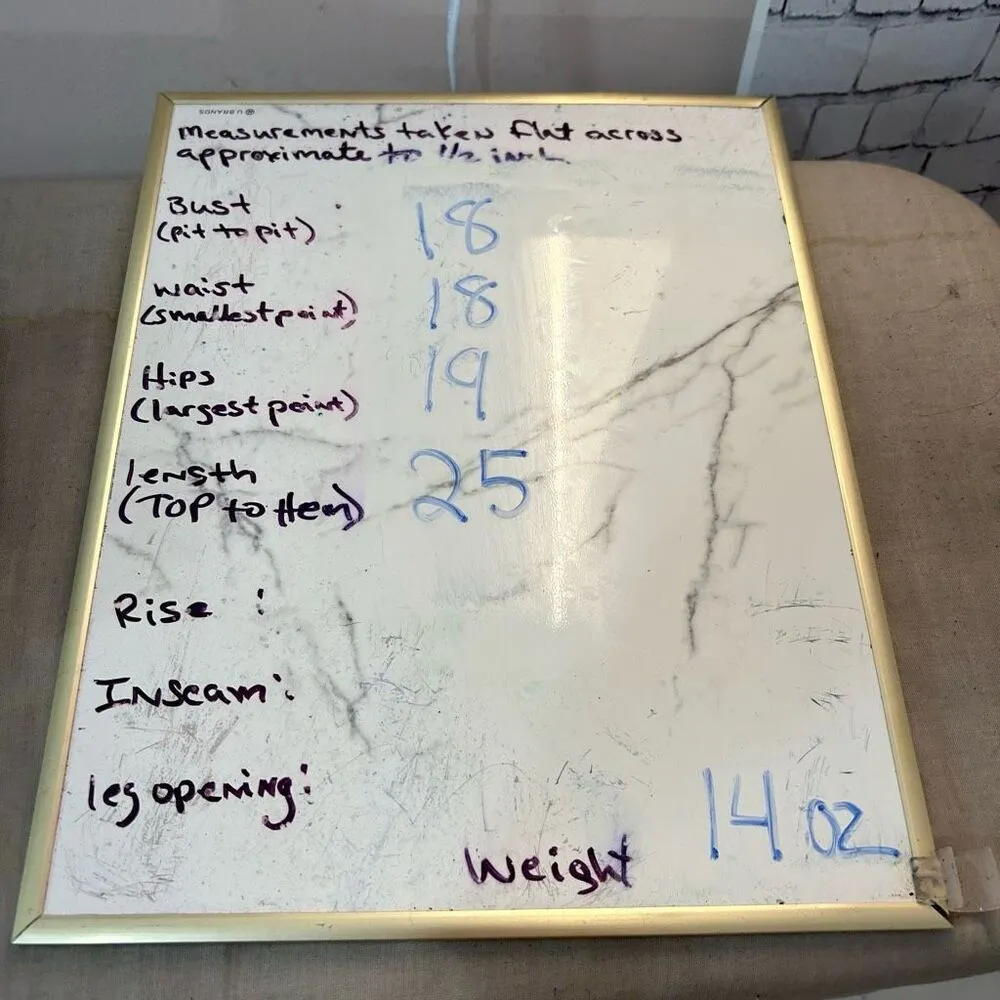 U BRANDS
Measurements taken flat across
approximate to 1/2 inch
Bust : 18
(pit to pit)
waist 18
(smallest point)
Hips 19
(largest point)
length 25
(TOP to Hem)
Rise :
Inseam :
leg opening :
14 oz
Weight